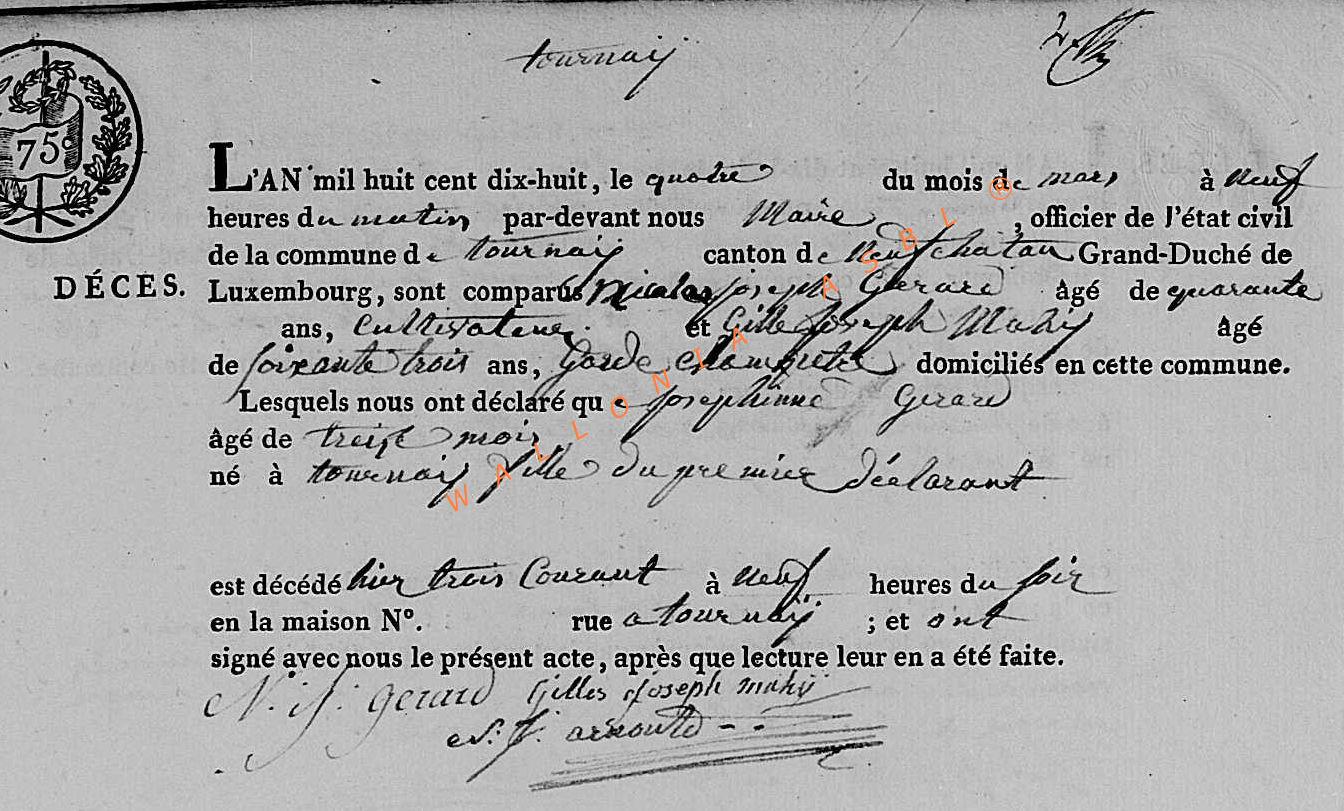 tournaÿ
2
75c
L'AN mil huit cent dix-huit, le quatre du mois de mars à neuf
heures du matin par-devant nous Maire, officier de l'état civil
de la commune de tournaÿ canton de Neufchatau Grand-Duché de
DÉCES. Luxembourg, sont comparus Nicolas joseph Gerard âgé de quarante
ans, Cultivateur et Gille joseph Mahÿ âgé
de soixante trois ans, Garde Champetre domiciliés en cette commune.
Lesquels nous ont déclaré que josephinne Gerard
âgé de treize mois
né à tournaÿ fille du premier déclarant
est décédé hier trois Courant à neuf heures du soir
en la maison N°. rue a tournaÿ ; et ont
signé avec nous le présent acte, après que lecture leur en a été faite.
N. j. gerard Gilles joseph mahÿ
N. J. arnould
WALLONIA ASBL ®